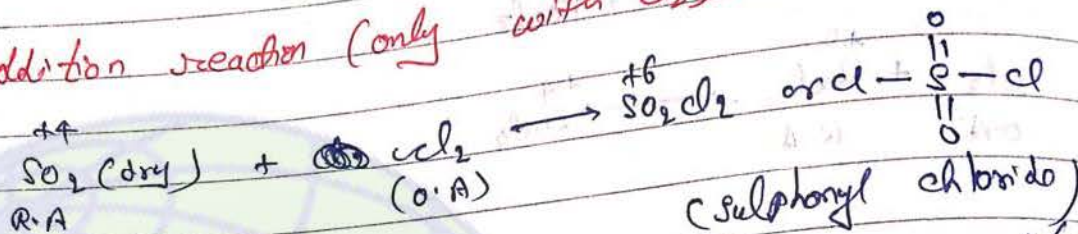 ddition reaction (only with
+4 SO₂ (dry) + Cl₂ ⟶ +6 SO₂Cl₂ or Cl — S — Cl
O
O
R.A (O.A) (Sulphonyl chloride)